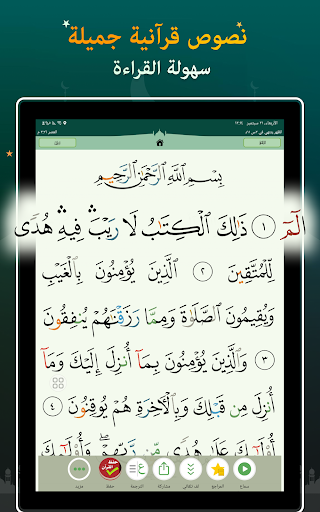 نصوص قرآنية جميلة
سهولة القراءة
بِسْمِ ٱللَّهِ ٱلرَّحْمَٰنِ ٱلرَّحِيمِ
الٓمٓ ١ ذَٰلِكَ ٱلْكِتَٰبُ لَا رَيْبَ ۛ فِيهِ ۛ هُدًى
لِّلْمُتَّقِينَ ٢ ٱلَّذِينَ يُؤْمِنُونَ بِٱلْغَيْبِ
وَيُقِيمُونَ ٱلصَّلَوٰةَ وَمِمَّا رَزَقْنَٰهُمْ يُنفِقُونَ
٣ وَٱلَّذِينَ يُؤْمِنُونَ بِمَآ أُنزِلَ إِلَيْكَ وَمَآ
أُنزِلَ مِن قَبْلِكَ وَبِٱلْءَاخِرَةِ هُمْ يُوقِنُونَ ٤
أُو۟لَٰٓئِكَ عَلَىٰ هُدًى مِّن رَّبِّهِمْ ۖ وَأُو۟لَٰٓئِكَ
سماع
المراجع
مشاركة
الترجمة
حفظ
مزيد